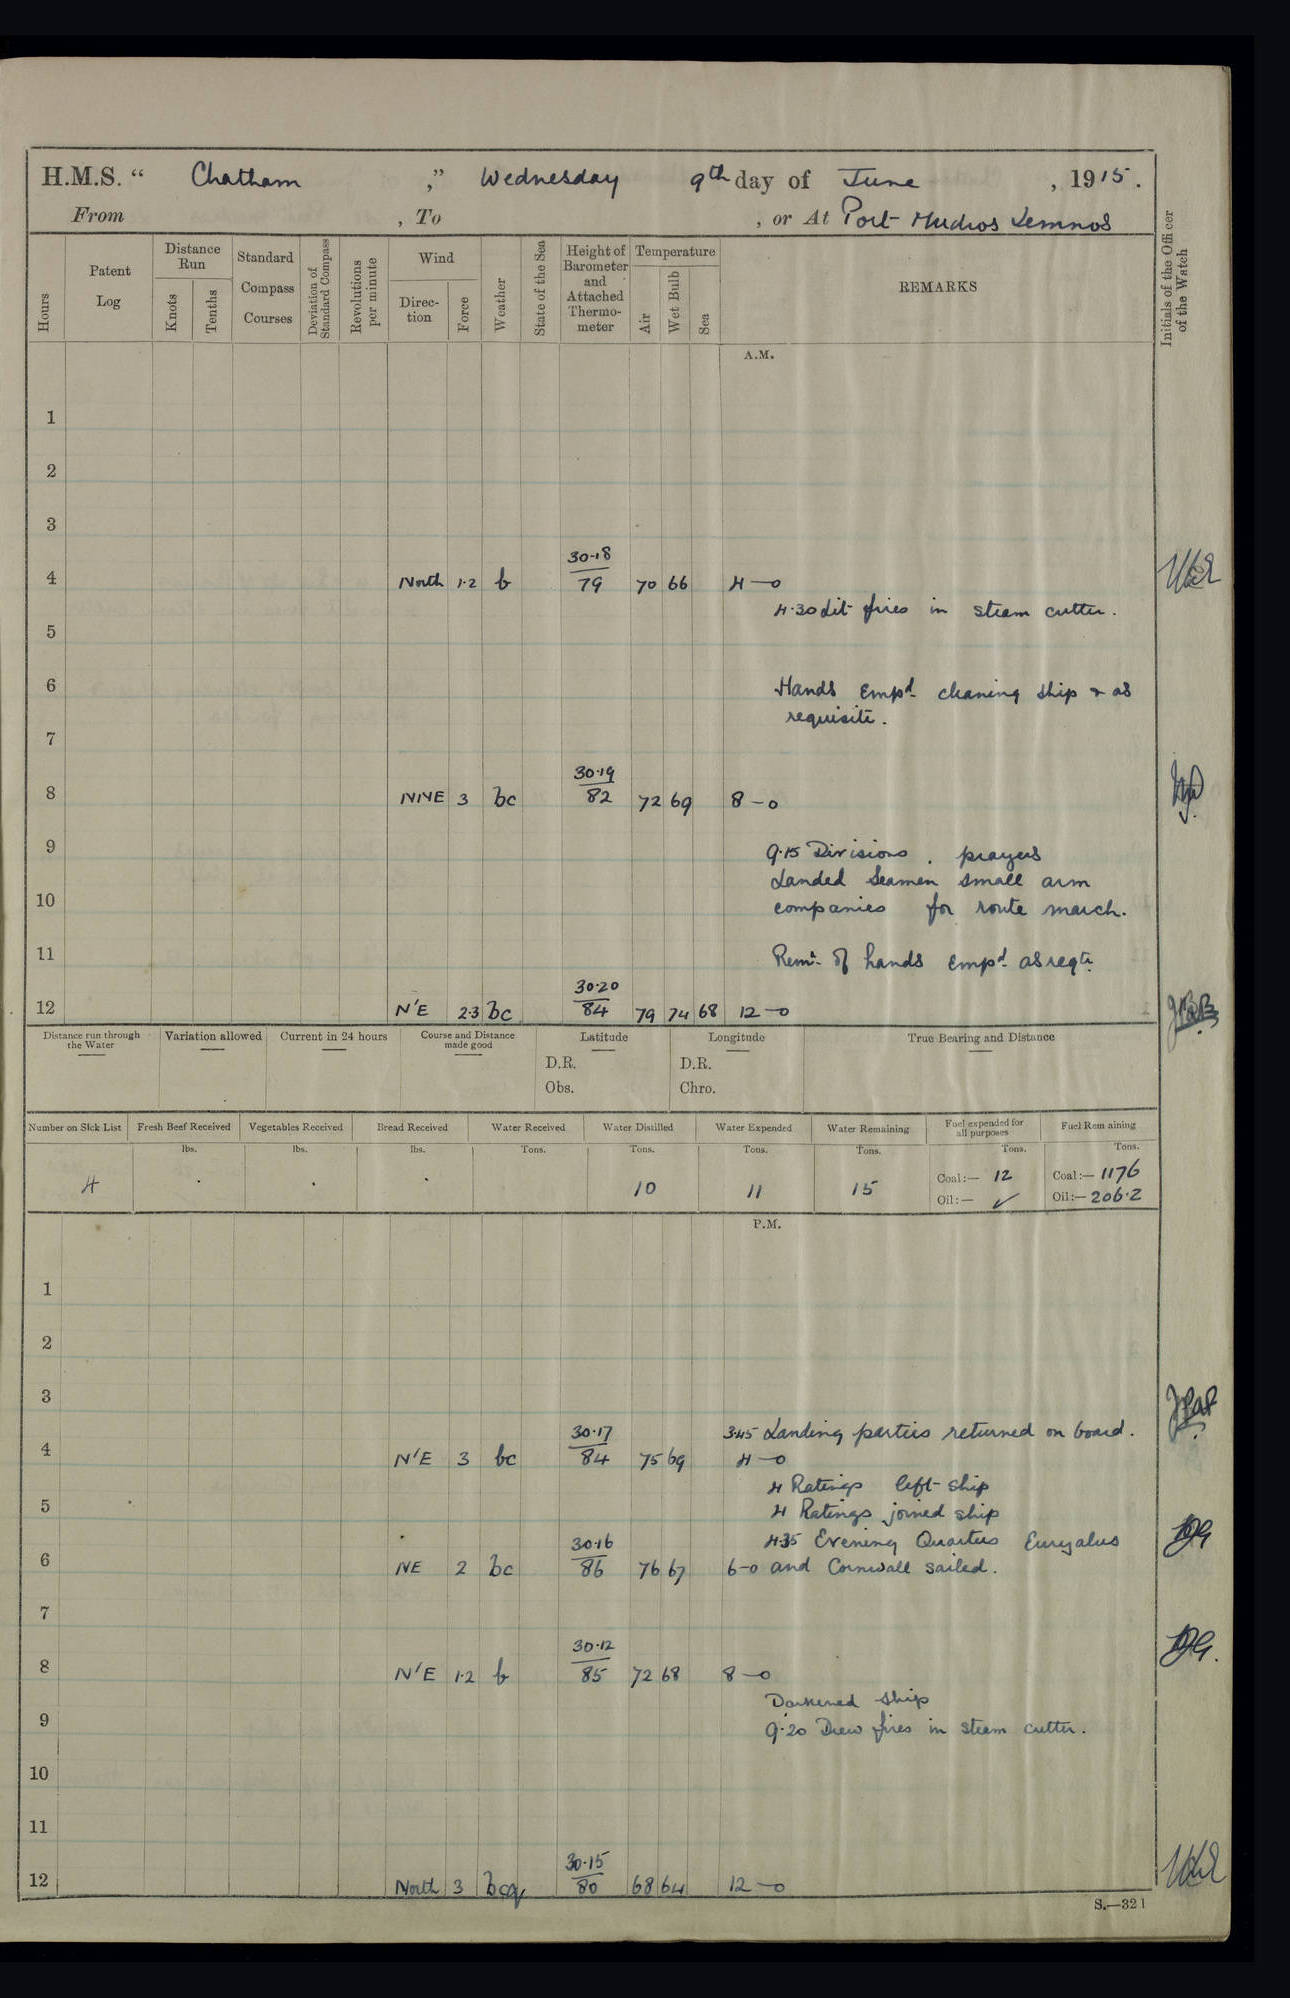 H.M.S. “ Chatham ,” Wednesday 9th day of June , 1915.
From , To , or At Port Mudros Lemnos
Hours
Patent Log
Distance Run
Knots
Tenths
Standard Compass Courses
Deviation of Standard Compass
Revolutions per minute
Wind
Direc-tion
Force
Weather
State of the Sea
Height of Barometer and Attached Thermo-meter
Temperature
Air
Wet Bulb
Sea
REMARKS
Initials of the Officer of the Watch
A.M.
1
2
3
30·18
4 North 1·2 b 79 70 66 4 —0
4·30 Lit fires in steam cutter.
5
6 Hands empd. cleaning ship & as
requisite.
7
30·19
8 NNE 3 bc 82 72 69 8 —0
9 9·15 Divisions . prayers
Landed Seamen small arm
10 companies for route march.
11 Remr. of hands empd. as reqte.
30·20
12 N'E 2·3 bc 84 79 74 68 12 —0
Distance run through the Water
Variation allowed
Current in 24 hours
Course and Distance made good
Latitude
D.R.
Obs.
Longitude
D.R.
Chro.
True Bearing and Distance
Number on Sick List
Fresh Beef Received
Vegetables Received
Bread Received
Water Received
Water Distilled
Water Expended
Water Remaining
Fuel expended for all purposes
Fuel Remaining
lbs. lbs. lbs. Tons. Tons. Tons. Tons. Tons. Tons.
4 10 11 15 Coal:— 12 Coal:— 1176
Oil:— ✓ Oil:— 206·2
P.M.
1
2
3
30·17 3·45 Landing parties returned on board.
4 N'E 3 bc 84 75 69 4 —0
4 Ratings left ship
5 4 Ratings joined ship
30·16 4·35 Evening Quarters Euryalus
6 NE 2 bc 86 76 67 6—0 and Cornwall sailed.
7
30·12
8 N'E 1·2 b 85 72 68 8 —0
Darkened ship
9 9·20 Drew fires in steam cutter.
10
11
30·15
12 North 3 bcq 80 68 64 12 —0
S.—321